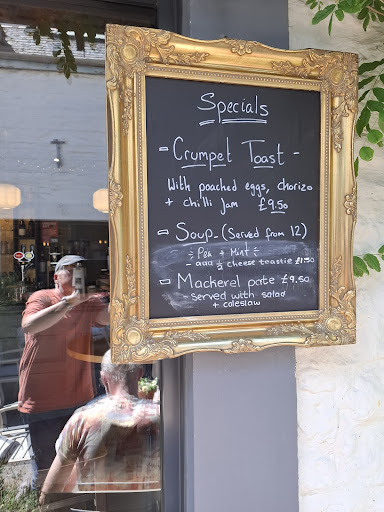 Specials
- Crumpet Toast -
With poached eggs, chorizo
+ chilli jam £9.50
- Soup - (Served from 12)
Pea + Mint
- add ½ cheese toastie £1.50
- Mackerel pate £9.50
served with salad
+ coleslaw